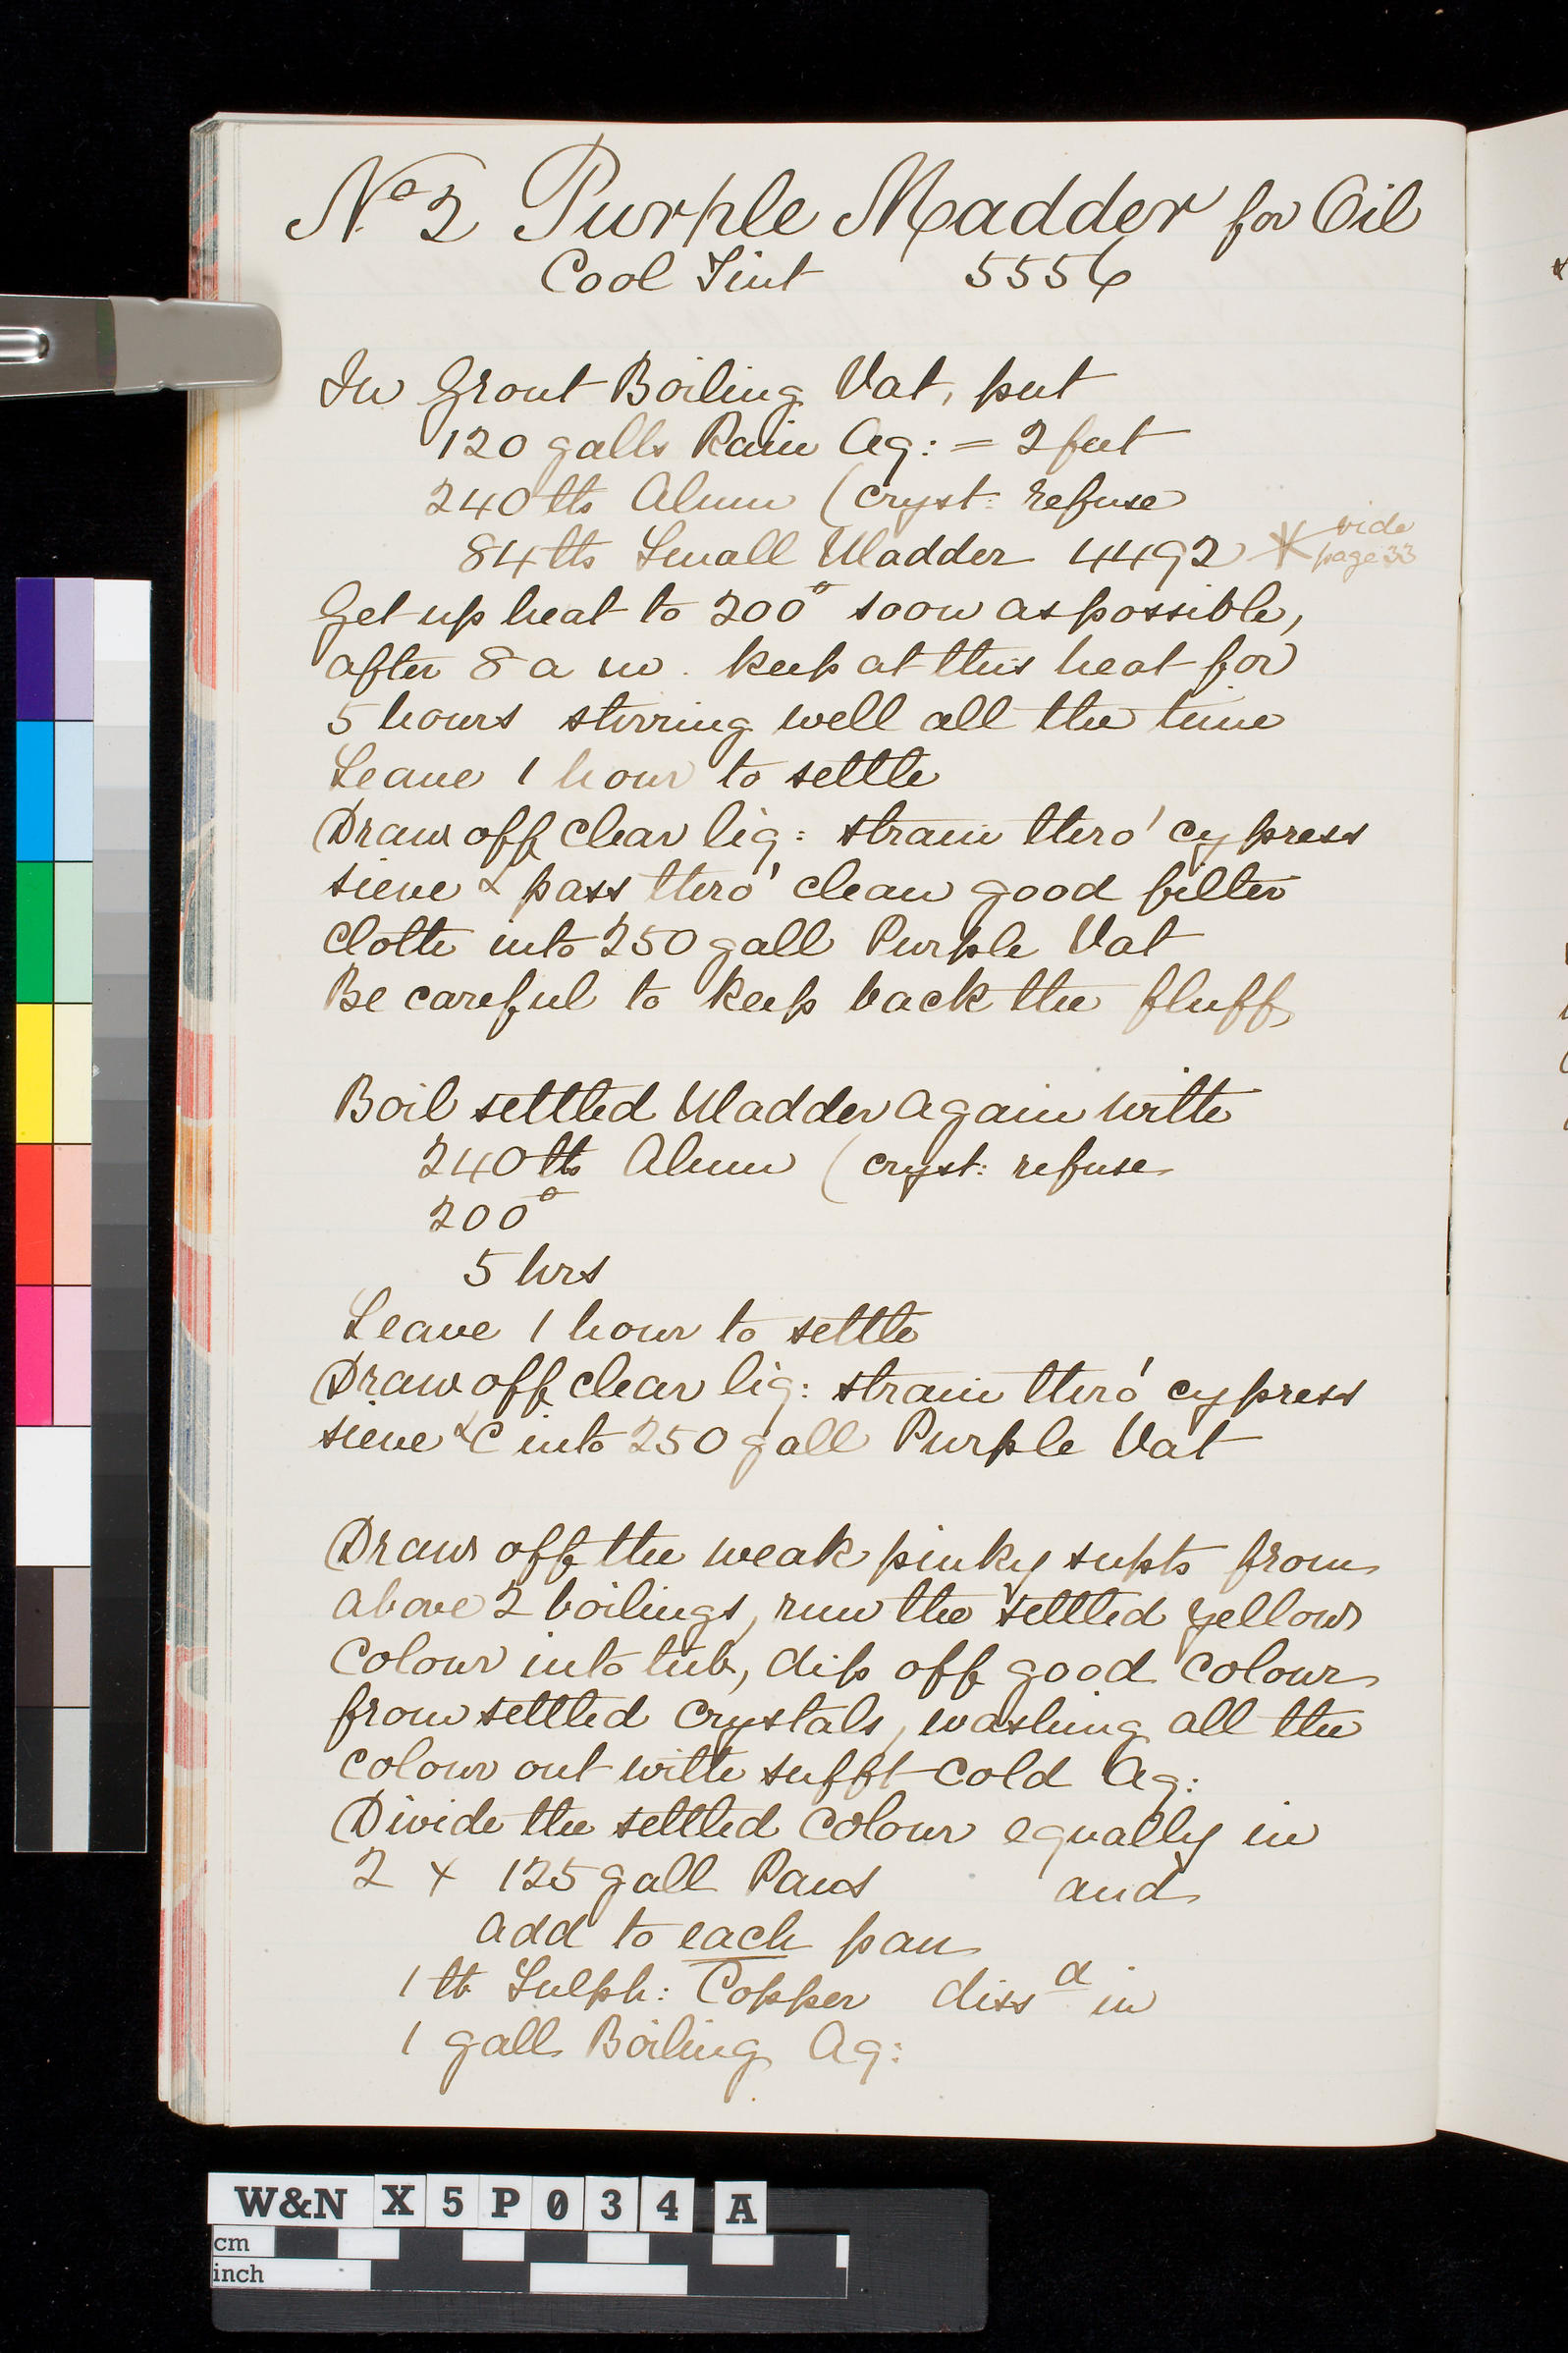 No 2 Purple Madder for Oil
Cool Tint 5556
In Grout Boiling Vat, put
120 galls Rain Aq: = 2 feet
240 lbs Alum (cryst: refuse
84 lbs Small Madder 4492 * vide page 33
Get up heat to 200° soon as possible,
after 8 a m. keep at this heat for
5 hours stirring well all the time
Leave 1 hour to settle
Draw off clear liq: strain thro' cypress
sieve & pass thro' clean good filter
cloth into 250 gall Purple Vat
Be careful to keep back the fluff
Boil settled Madder again with
240 lbs Alum (cryst: refuse
200°
5 hrs
Leave 1 hour to settle
Draw off clear liq: strain thro' cypress
sieve &c into 250 gall Purple Vat
Draw off the weak pinky supts from
above 2 boilings, run the settled yellow
colour into tub, dip off good colour
from settled crystals, washing all the
colour out with sufft cold Aq:
Divide the settled colour equally in
2 x 125 gall Pans and
add to each pan
1 lb Sulph: Copper dissd in
1 gall Boiling Aq:
W&N X5P034A
cm
inch